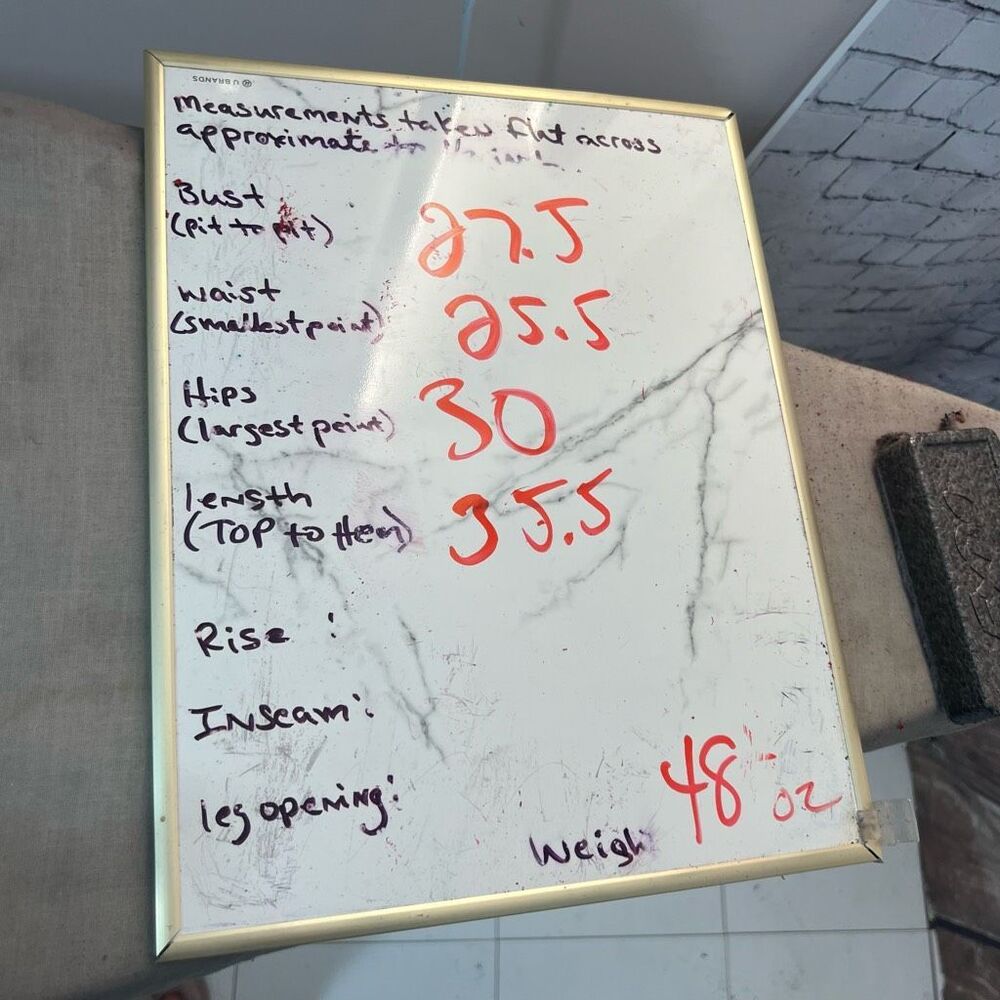 U BRANDS
Measurements taken flat across
approximate
Bust
(pit to pit) 27.5
Waist
(smallest point) 25.5
Hips
(largest point) 30
length
(TOP to Hem) 35.5
Rise :
INseam:
leg opening:
48 oz
Weigh